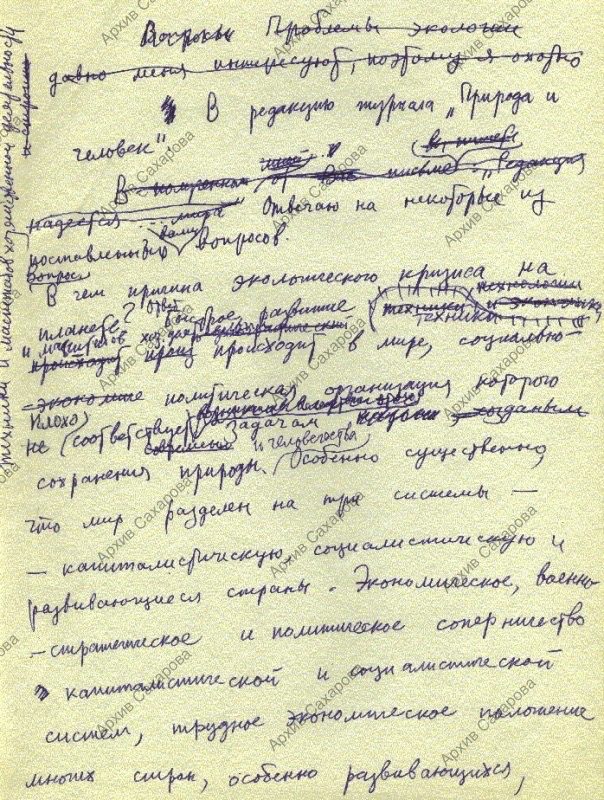 Вопросы Проблемы экологии
давно меня интересуют, поэтому я охотно
В редакцию журнала „Природа и
человек".
В полученном от Вас письме „Редакция
надеется ... мира" Отвечаю на некоторые из
поставленных Вами вопросов.
Вопрос
В чем причина экологического кризиса на
планете? Ответ Быстрое развитие техники
и масштабов хоз. происходит в мире, социально-
экономи политическая организация которого
плохо
не соответствует задачам
сохранения природы и человечества. Особенно существенно,
что мир разделен на три системы —
— капиталистическую, социалистическую и
развивающиеся страны. Экономическое, военно-
-стратегическое и политическое соперничество
капиталистической и социалистической
систем, трудное экономическое положение
многих стран, особенно развивающихся,
техники и масштабов хозяйственной деятельности
Архив Сахарова